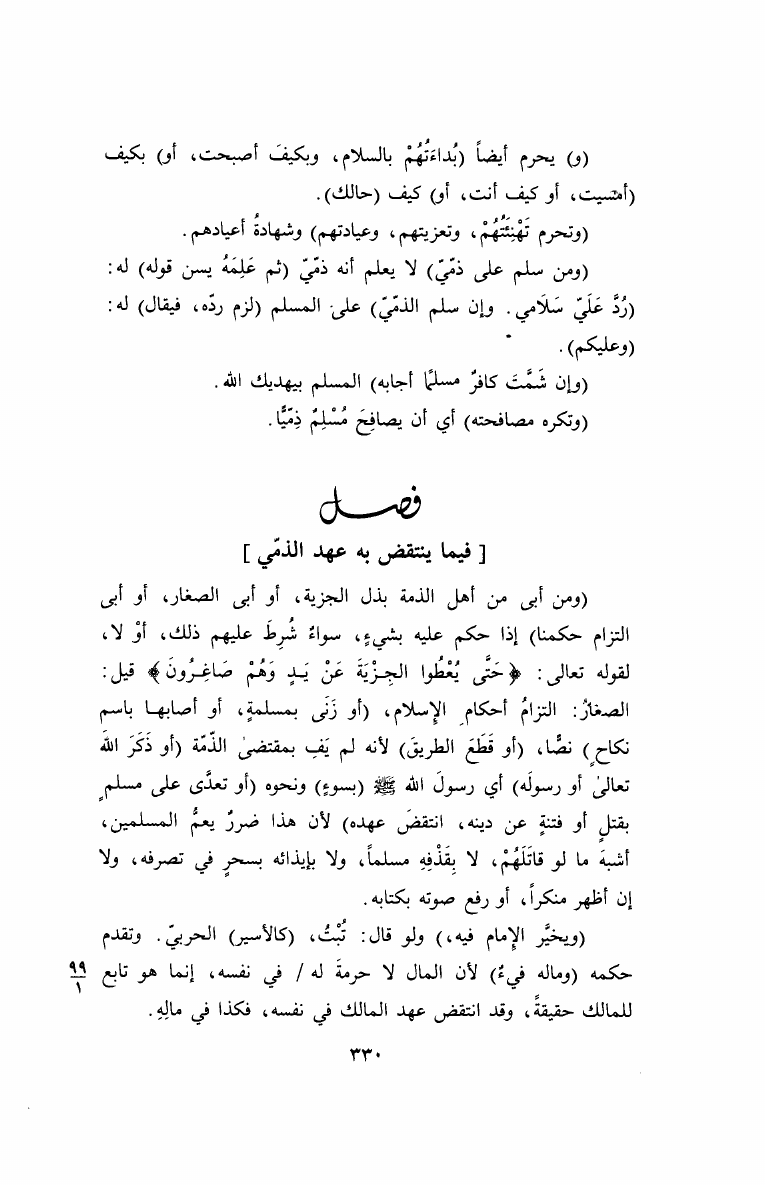 (و) يحرم أيضاً (بُداءَتُهُمْ بالسلام، وبكيفَ أصبحت، أو) بكيف
(أمسيت، أو كيف أنت، أو) كيف (حالك).
(وتحرم تَهْنِئَتُهُمْ، وتعزيتهم، وعيادتهم) وشهادةُ أعيادهم.
(ومن سلم على ذمّيّ) لا يعلم أنه ذمّيّ (ثم عَلِمَهُ يسن قوله) له:
(رُدَّ عَلَيّ سَلَامي. وإن سلم الذمّيّ) على المسلم (لزم ردّه، فيقال) له:
(وعليكم).
(وإن شَمَّتَ كافرٌ مسلمًا أجابه) المسلم بيهديك الله.
(وتكره مصافحته) أي أن يصافِحَ مُسْلِمٌ ذِمّيًّا.
فصل
[ فيما ينتقض به عهد الذمّي ]
(ومن أبى من أهل الذمة بذل الجزية، أو أبى الصغار، أو أبى
التزام حكمنا) إذا حكم عليه بشيءٍ، سواءٌ شُرِطَ عليهم ذلك، أوْ لا،
لقوله تعالى: ﴿حَتَّى يُعْطُوا الجِزْيَةَ عَنْ يَدٍ وَهُمْ صَاغِرُونَ﴾ قيل:
الصغارُ: التزامُ أحكامِ الإِسلام، (أو زَنَى بمسلمةٍ، أو أصابها باسم
نكاحٍ) نصًّا، (أو قَطَعَ الطريقَ) لأنه لم يَفِ بمقتضىٰ الذّمّة (أو ذَكَرَ اللهَ
تعالىٰ أو رسولَه) أي رسولَ الله ﷺ (بسوءٍ) ونحوه (أو تعدَّى على مسلمٍ
بقتلٍ أو فتنةٍ عن دينه، انتقضَ عهده) لأن هذا ضررٌ يعمُّ المسلمين،
أشبهَ ما لو قاتَلَهُمْ، لا بِقَذْفِهِ مسلماً، ولا بإيذائه بسحرٍ في تصرفه، ولا
إن أظهر منكراً، أو رفع صوته بكتابه.
(ويخيَّر الإمام فيه،) ولو قال: تُبْتُ، (كالأسير) الحربيّ. وتقدم
حكمه (وماله فيءٌ) لأن المال لا حرمةَ له / في نفسه، إنما هو تابع ٩٩/١
للمالك حقيقةً، وقد انتقض عهد المالك في نفسه، فكذا في مالِهِ.
٣٣٠